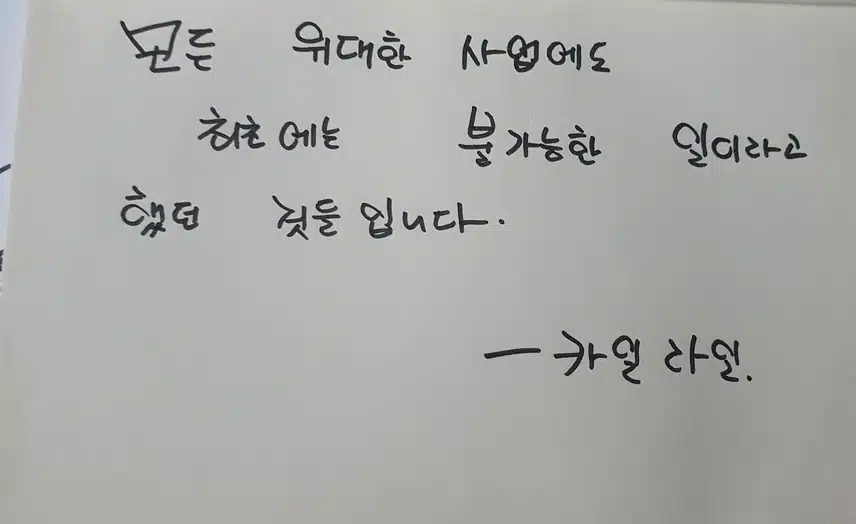 모든 위대한 사업에도
최초에는 불가능한 일이라고
했던 것들 입니다.
— 카일 라일.